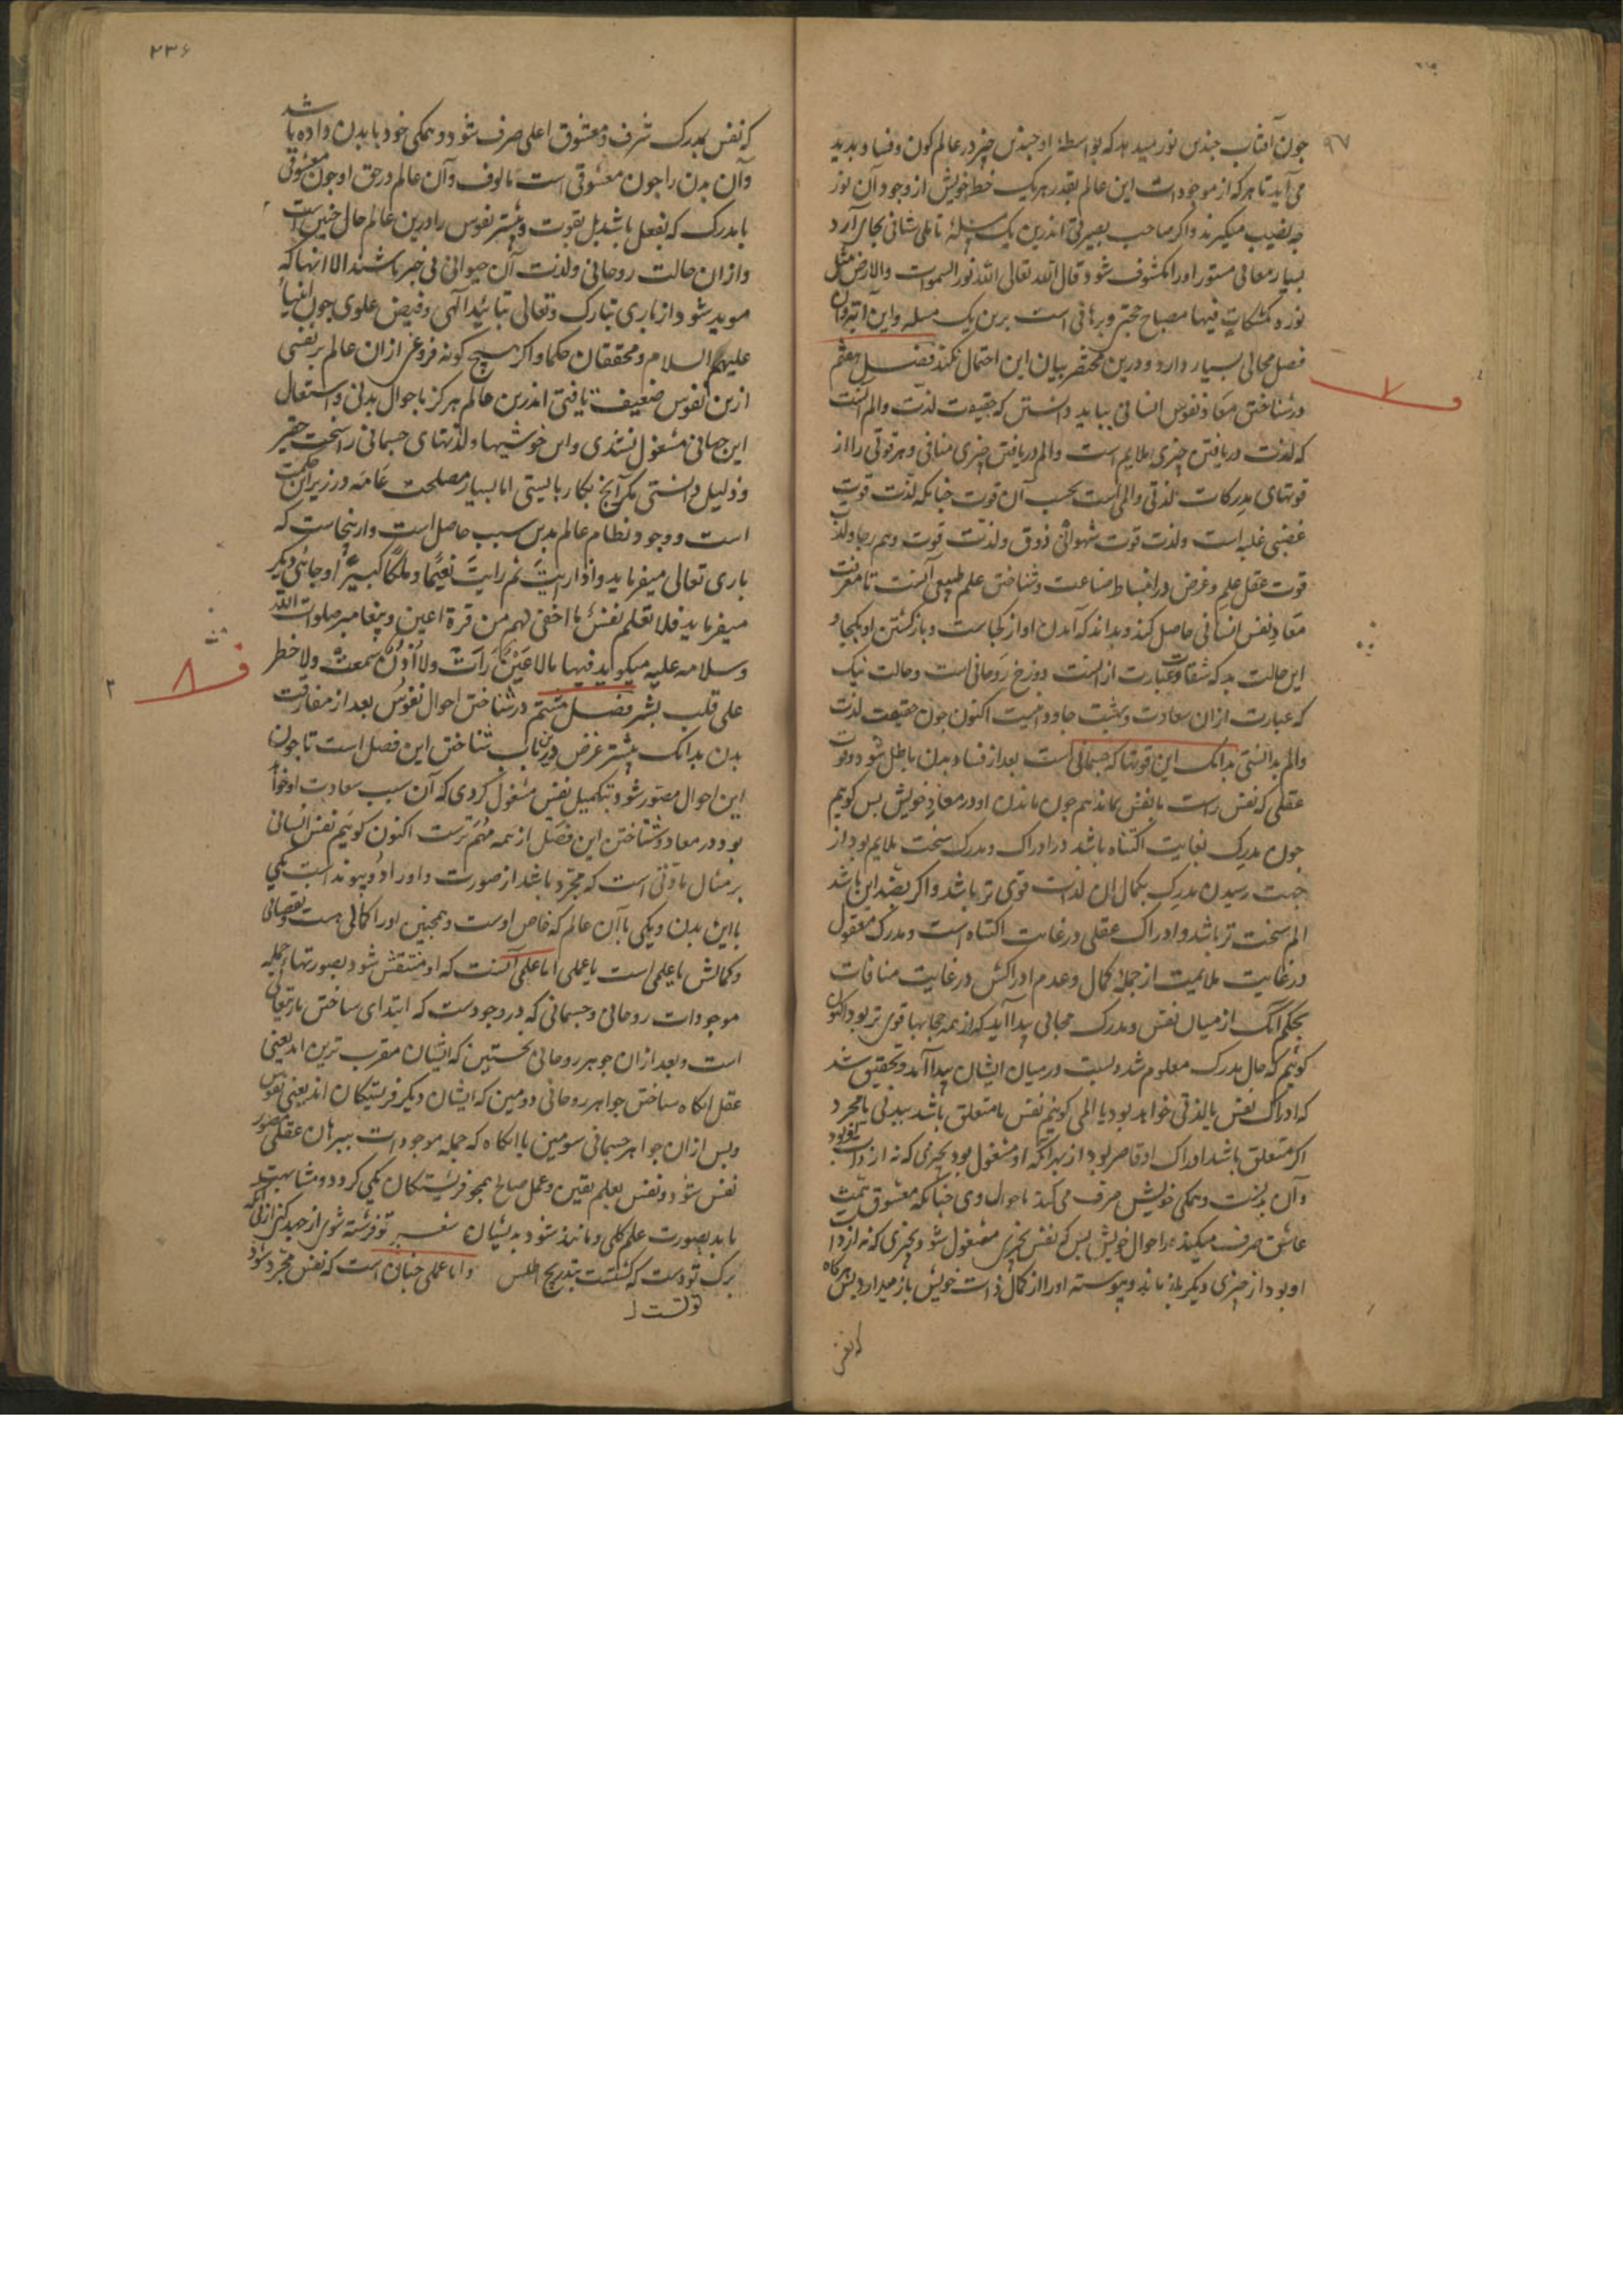 ۹۷
چون آفتاب چندین نور میدهد که بواسطهٔ او چندین چیز در عالم کون و فساد پدید
می آید تا هر که از موجودات این عالم بقدر هر یک حظ خویش از وجود آن نور
چه نصیب میگیرند و اگر صاحب بصیرتی اندرین یک مسئله تاملی شافی بجای آرد
بسیار معانی مستور او را مکشوف شود قال الله تعالی الله نور السموات والارض مثل
نوره کمشکاة فیها مصباح حجتی و برهانی است برین یک مسله و این آیه را
فصل مجالی بسیار دارد و درین مختصر بیان این احتمال نکند فصل هفتم
در شناختن معاد نفوس انسانی بباید دانستن که حقیقت لذت و الم آنست
که لذت دریافتن چیزی ملایم است و الم دریافتن چیزی منافی و هر قوتی را از
قوتهای مدرکات لذتی و المی است بحسب آن قوت چنانکه لذت قوت
غضبی غلبه است و لذت قوت شهوانی ذوق و لذت قوت وهم رجا و لذت
قوت عقل علم و غرض در انضباط صناعت و شناختن علم طبیعی آنست تا معرفت
معاد نفس انسانی حاصل کند و بداند که آمدن او از کجاست و بازگشتن او بکجا و
این حالت بد که شقاوت عبارت از آنست دوزخ روحانی است و حالت نیک
که عبارت ازان سعادت و بهشت جاودانیست اکنون چون حقیقت لذت
و الم بدانستی بدانک این قوتها که جسمانی است بعد از فساد بدن باطل شود و قوت
عقلی که نفس راست با نفس بماند هم چون ماندن او در معاد خویش پس گوئیم
چون مدرک بغایت اکتناه باشد در ادراک و مدرک سخت ملایم بود از
جهت رسیدن مدرک بکمال آن لذت قوی تر باشد و اگر بضد این باشد
الم سخت تر باشد و ادراک عقلی در غایت اکتناه است و مدرک معقول
در غایت ملائمیت از جمله کمال و عدم ادراکش در غایت منافات
بحکم آنک از میان نفس و مدرک حجابی پیدا آید که از همه حجابها قوی تر بود اکنون
گوئیم که حال مدرک معلوم شد و نسبت در میان ایشان پیدا آمد و تحقیق شد
که ادراک نفس یا لذتی خواهد بود یا المی گوئیم نفس یا متعلق باشد ببدنی یا مجرد
اگر متعلق باشد ادراک او قاصر بود از بهر آنکه او مشغول بود بچیزی که نه از ذات او بود
و آن بدنست و همگی خویش صرف می کند باحوال وی چنانکه معشوق همت
عاشق صرف میکند باحوال خویش پس که نفس بچیزی مشغول شود بچیزی که نه از ذات
او بود از چیزی دیگر باز ماند و پیوسته او را از کمال ذات خویش باز میدارد پس هرگاه
که نفس
۲۳۶
که نفس بمدرک شرف و معشوق اعلی صرف شود و همگی خود با بدن داده باشد
و آن بدن را چون معشوقی است مالوف و آن عالم در حق او چون معشوقی
یا مدرک که بفعل باشد بل بقوت و بیشتر نفوس را درین عالم حال چنین است
و ازان حالت روحانی و لذت آن حیوانی بی خبر باشند الا انها که
موید شود از باری تبارک و تعالی بتائید آلهی و فیض علوی چون انبیا
علیهم السلام و محققان حکما و اگر هیچ گونه فروغی ازان عالم بر نفسی
ازین نفوس ضعیف تافتی اندرین عالم هرگز باحوال بدنی و اشتغال
این جهانی مشغول نشدی و این خوشیها و لذتهای جسمانی را سخت حقیر
و ذلیل دانستی مگر آنچ بکار بایستی اما بسیار مصلحت عامه در زیر این حکمت
است و وجود نظام عالم بدین سبب حاصل است و ازینجاست که
باری تعالی میفرماید و اذا رایت ثم رایت نعیما و ملکا کبیرا و جائی دیگر
میفرماید فلا تعلم نفس ما اخفی لهم من قرة اعین و پیغامبر صلوات الله
و سلامه علیه میگوید فیها ما لا عین رات ولا اذن سمعت ولا خطر
علی قلب بشر فصل هشتم در شناختن احوال نفوس بعد از مفارقت
بدن بدانک بیشتر غرض درین باب شناختن این فصل است تا چون
این احوال متصور شود بتکمیل نفس مشغول گردی که آن سبب سعادت او خواهد
بود در معاد و شناختن این فصل از همه مهم ترست اکنون گوئیم نفس انسانی
بر مثال مادتی است که مجرد باشد از صورت و او را دو پیوند است یکی
با این بدن و یکی با آن عالم که خاص اوست و همچنین او را کمالی هست و نقصانی
و کمالش یا علمی است یا عملی اما علمی آنست که او منتقش شود بصورتها جمله
موجودات روحانی و جسمانی که در وجودست که ابتدای ساختن باریتعالی
است و بعد ازان جوهر روحانی نخستین که ایشان مقرب ترین اند یعنی
عقل آنگاه ساختن جواهر روحانی دومین که ایشان دیگر فریشتگان اند یعنی نفوس
و پس ازان جواهر جسمانی سومین تا آنگاه که جمله موجودات ببرهان عقلی متصور
نفس شود و نفس بعلم یقین و عمل صالح همچو فریشتگان یکی گردد و مشابهت
یابد بصورت علم کلی و مانند شود بدیشان شعر تو فرشته شوی ار جهد کنی از پی آنکه
برگ توتست که گشتست بتدریج اطلس و اما عملی چنان است که نفس مجرد شود
ف ۷
ف ۸